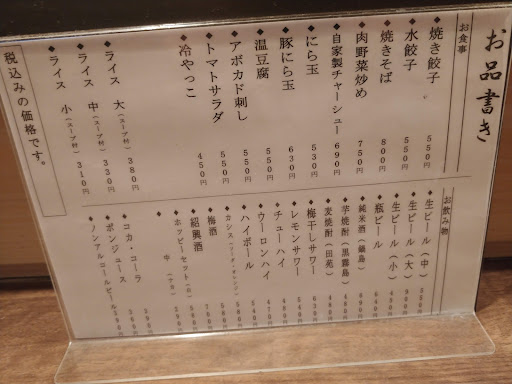 お品書き
お食事
◆焼き餃子 550円
◆水餃子 550円
◆焼きそば 800円
◆肉野菜炒め 750円
◆自家製チャーシュー 690円
◆にら玉 530円
◆豚にら玉 630円
◆温豆腐 550円
◆アボカド刺し 550円
◆トマトサラダ 550円
◆冷やっこ 450円
◆ライス 大(スープ付) 380円
◆ライス 中(スープ付) 330円
◆ライス 小(スープ付) 310円
税込みの価格です。
お飲み物
◆生ビール(中)
◆生ビール(大)
◆生ビール(小)
◆瓶ビール
◆純米酒(鍋島)
◆芋焼酎(黒霧島)
◆麦焼酎(田苑)
◆梅干しサワー
◆レモンサワー
◆チューハイ
◆ウーロンハイ
◆ハイボール
◆カシス(ソーダ・オレンジ)
◆梅酒
◆紹興酒
◆ホッピーセット
◆中
◆コカ・コーラ
◆ポンジュース
◆ノンアルコールビール